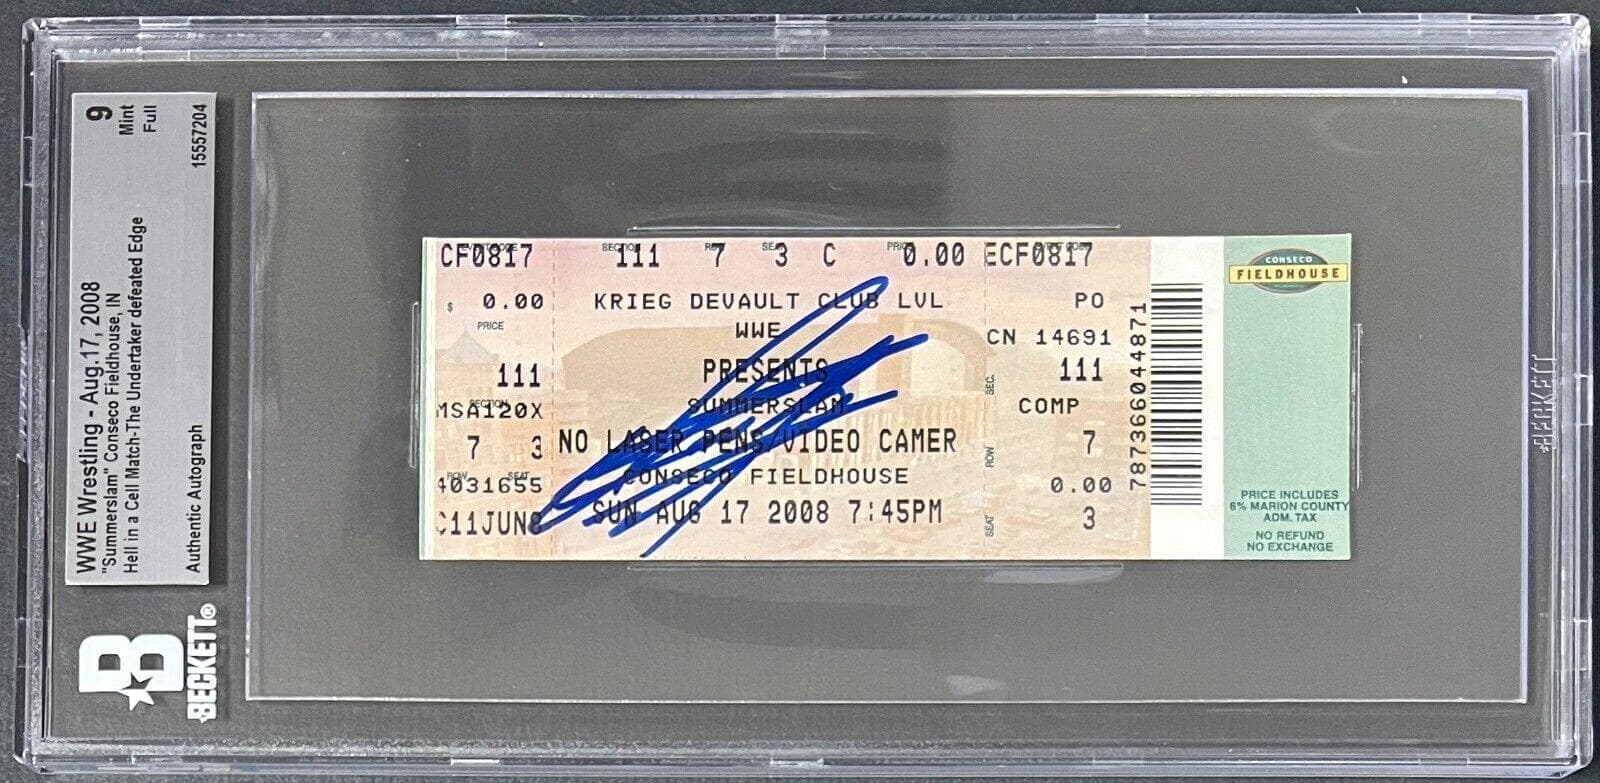 WWE Wrestling - Aug.17, 2008
"Summerslam" Conseco Fieldhouse, IN
Hell in a Cell Match-The Undertaker defeated Edge
Authentic Autograph
9
Mint
Full
15557204
BECKETT®
EVENT CODE
CF0817
$ 0.00
PRICE
111
SECTION
MSA120X
7 3
ROW SEAT
4031655
C11JUN8
SECTION ROW SEAT PRICE
111 7 3 C 0.00
KRIEG DEVAULT CLUB LVL
WWE
PRESENTS
SUMMERSLAM
NO LASER PENS/VIDEO CAMER
CONSECO FIELDHOUSE
SUN AUG 17 2008 7:45PM
EVENT CODE
ECF0817
PO
CN 14691
SEC. 111
COMP
ROW 7
0.00
SEAT 3
787366044871
CONSECO
FIELDHOUSE
PRICE INCLUDES
6% MARION COUNTY
ADM. TAX
NO REFUND
NO EXCHANGE
BECKETT